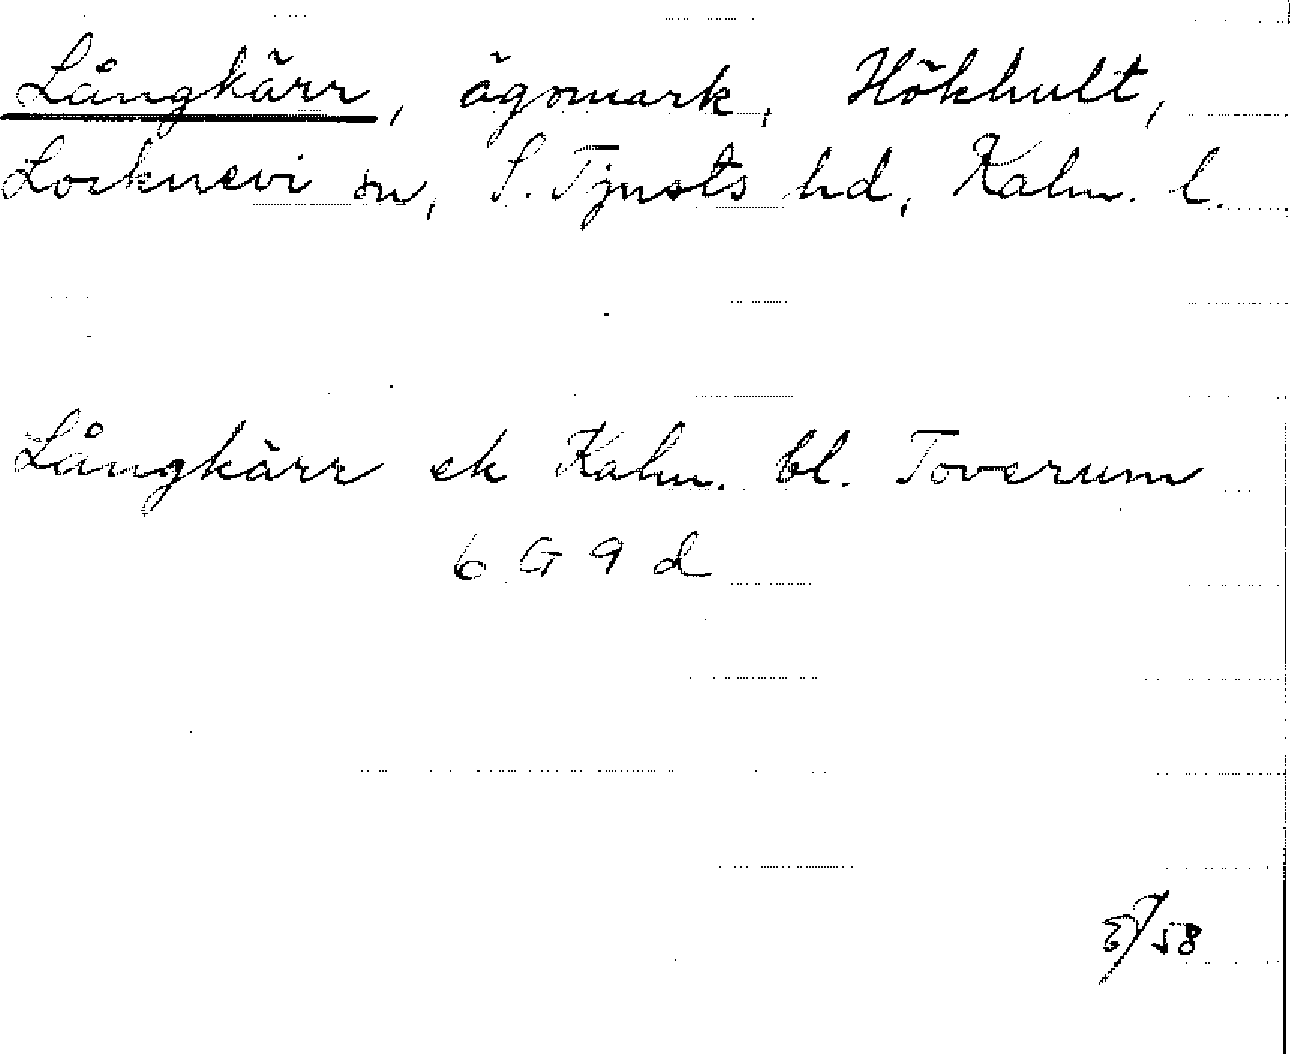 Långkärr, ägomark, Hökhult,
Locknevi sn, S. Tjusts hd, Kalm. l.
Långkärr ek Kalm. bl. Toverum
6 G 9 d
58